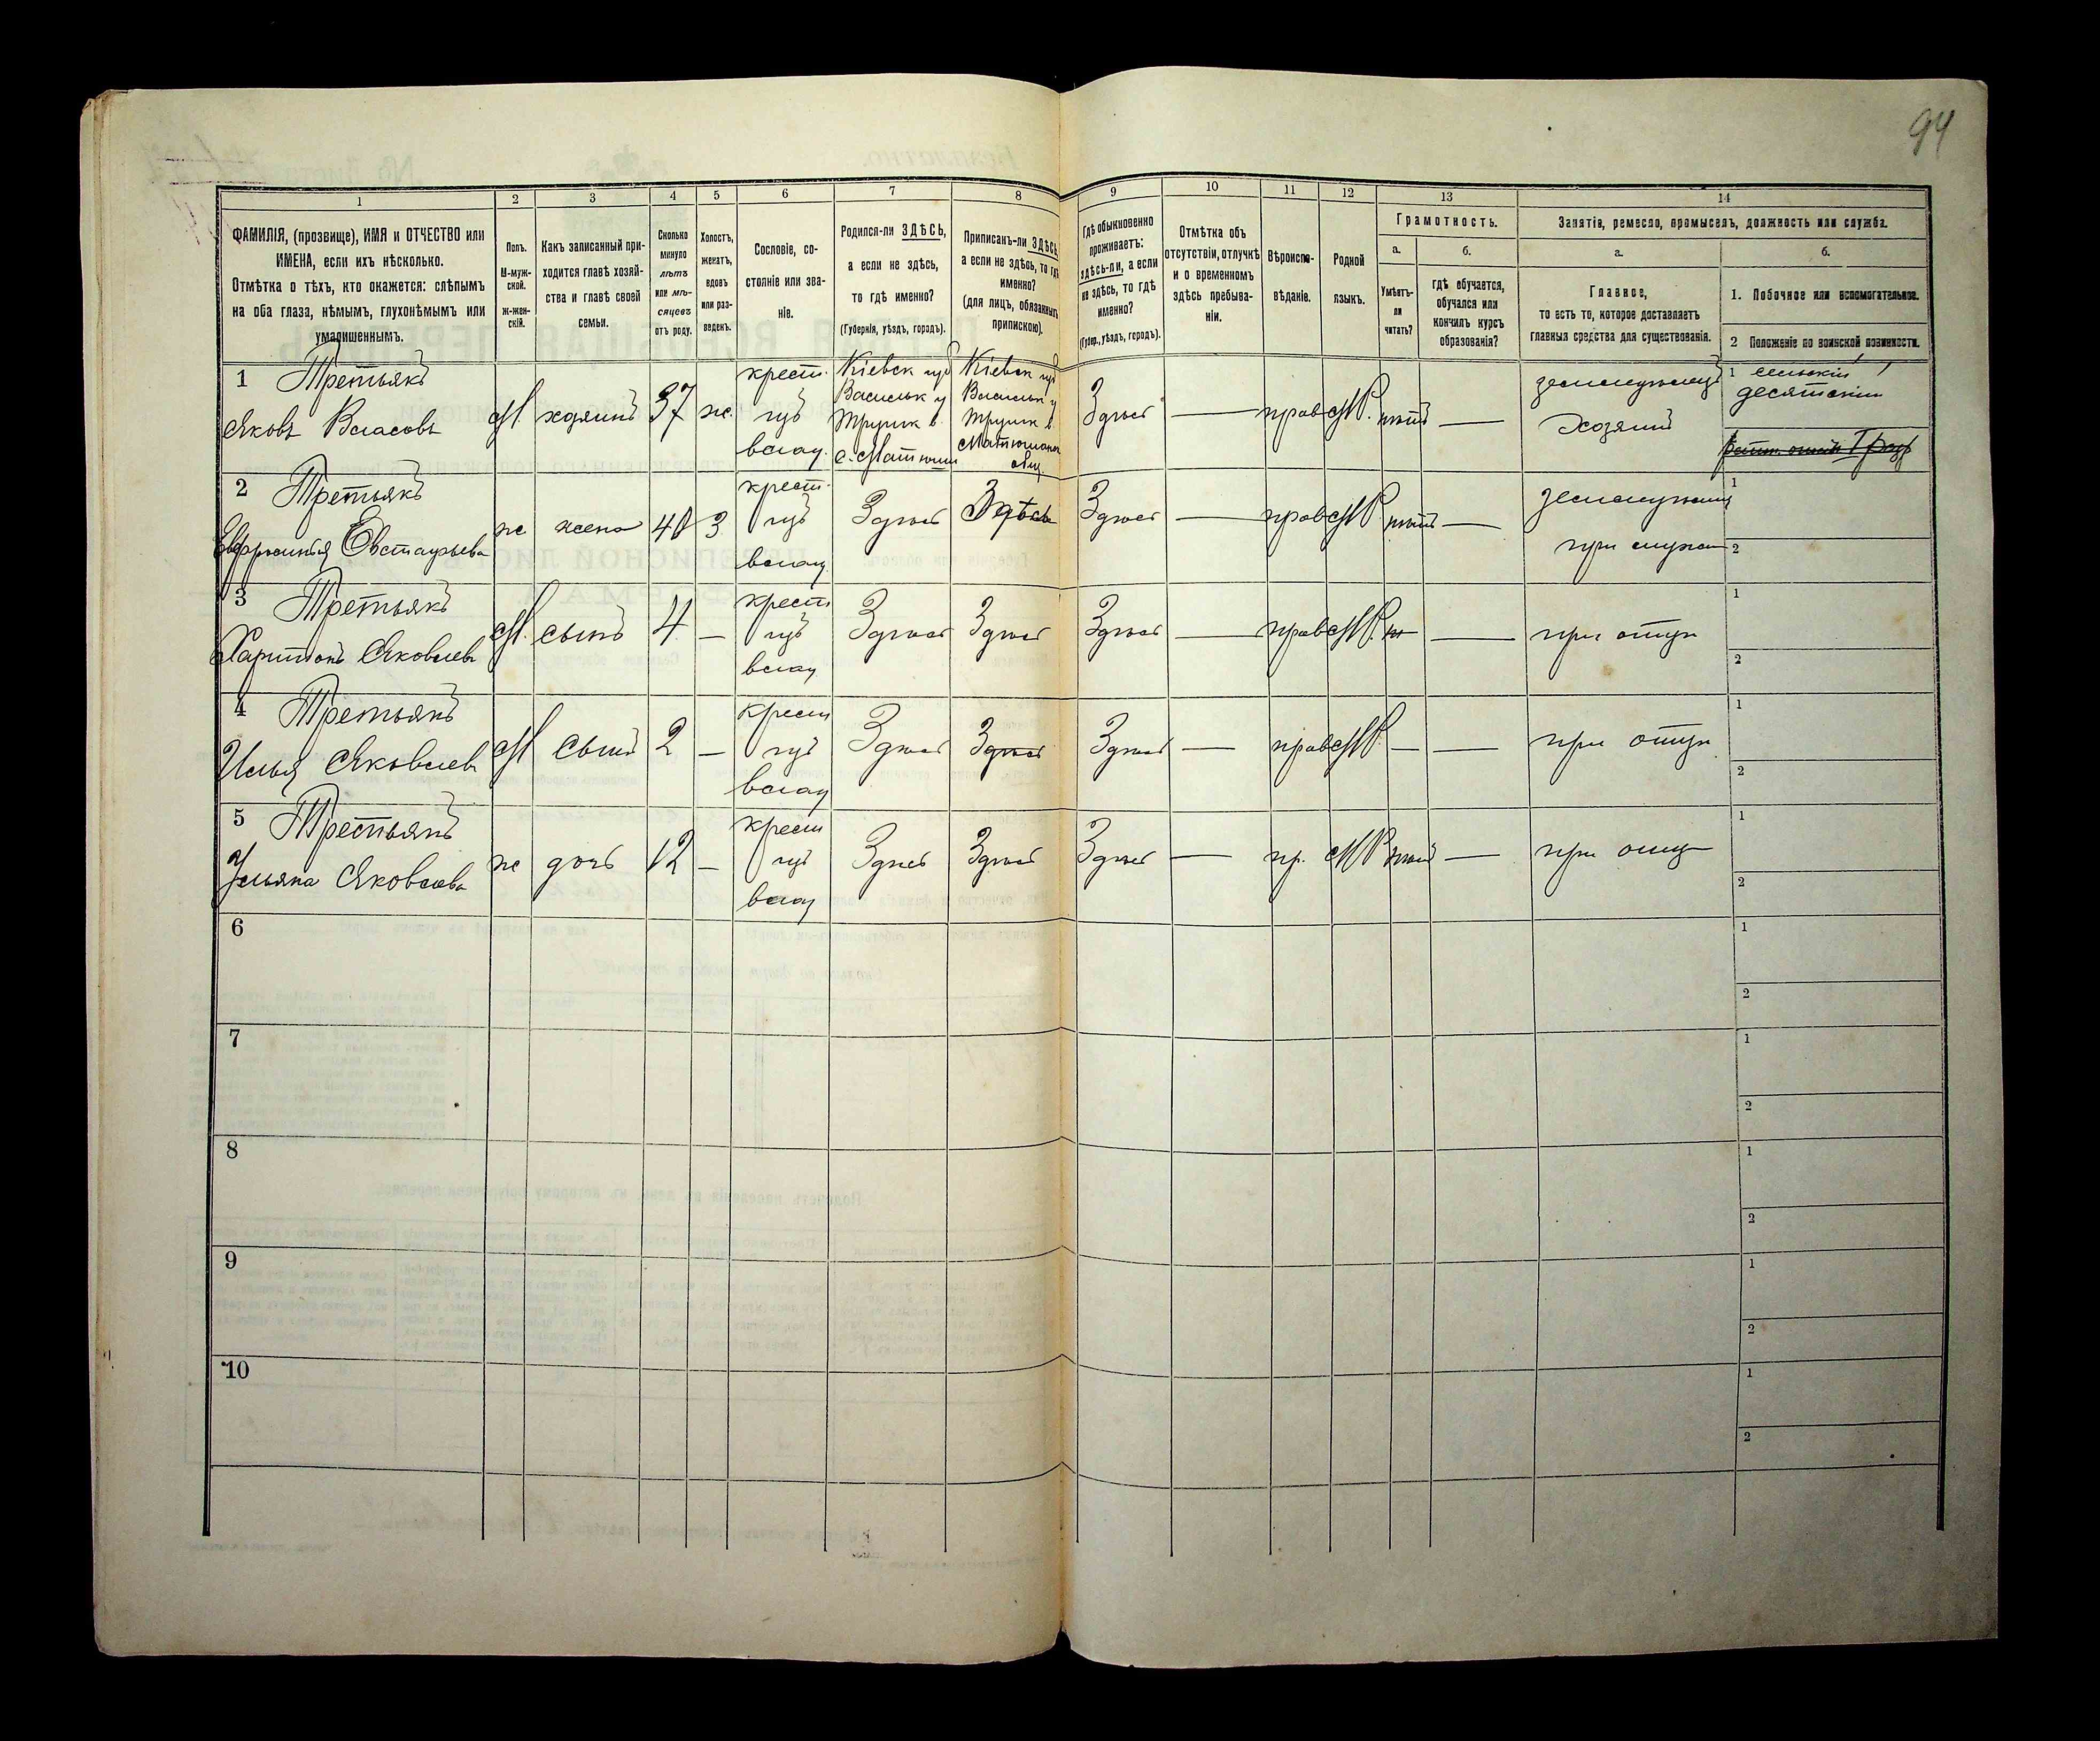 94
1 2 3 4 5 6 7 8 9 10 11 12 13 14
ФАМИЛІЯ, (прозвище), ИМЯ и ОТЧЕСТВО или
ИМЕНА, если ихъ нѣсколько.
Отмѣтка о тѣхъ, кто окажется: слѣпымъ
на оба глаза, нѣмымъ, глухонѣмымъ или
умалишеннымъ.
Полъ.
М-муж-
ской.
Ж-жен-
скій.
Какъ записанный при-
ходится главѣ хозяй-
ства и главѣ своей
семьи.
Сколько
минуло
лѣтъ
или мѣ-
сяцевъ
отъ роду.
Холостъ,
женатъ,
вдовъ
или раз-
веденъ.
Сословіе, со-
стояніе или зва-
ніе.
Родился-ли ЗДѢСЬ,
а если не здѣсь,
то гдѣ именно?
(Губернія, уѣздъ, городъ).
Приписанъ-ли ЗДѢСЬ,
а если не здѣсь, то гдѣ
именно?
(для лицъ, обязанныхъ
припискою).
Гдѣ обыкновенно
проживаетъ:
здѣсь-ли, а если
не здѣсь, то гдѣ
именно?
(Губер., уѣздъ, городъ).
Отмѣтка объ
отсутствіи, отлучкѣ
и о временномъ
здѣсь пребыва-
ніи.
Вѣроиспо-
вѣданіе.
Родной
языкъ.
Грамотность.
а.
Умѣетъ-
ли
читать?
б.
гдѣ обучается,
обучался или
кончилъ курсъ
образованія?
Занятія, ремесло, промыселъ, должность или служба.
а.
Главное,
то есть то, которое доставляетъ
главныя средства для существованія.
б.
1. Побочное или вспомогательное.
2 Положеніе по воинской повинности.
1 Третьякъ
Яковъ Власовъ
М. хозяинъ 37 ж.
крест.
изъ
влад.
Кіевск губ
Васильк у
Трушк в.
с. Матюши
Кіевск губ
Васильк у
Трушк в.
Матюшанск
общ.
Здѣсь — прав М.Р. нѣтъ —
земледѣлецъ
Хозяинъ
1 сельскій
десятскій
2 Третьякъ
Ефросинія Евстафьева
ж жена 40 З
крест.
изъ
влад.
Здѣсь Здѣсь Здѣсь — прав М.Р нѣтъ —
земледѣлец
при мужѣ
1
2
3 Третьякъ
Харитонъ Яковлевъ
М. сынъ 4 —
крест
изъ
влад
Здѣсь Здѣсь Здѣсь — прав М.Р. — при отцѣ
1
2
4 Третьякъ
Илья Яковлевъ
М сынъ 2 —
крест
изъ
влад
Здѣсь Здѣсь Здѣсь — прав М.Р. — — при отцѣ
1
2
5 Третьякъ
Ульяна Яковлева
ж дочь 12 —
крест
изъ
влад
Здѣсь Здѣсь Здѣсь — пр. М.Р нѣтъ — при отцѣ
1
2
6
1
2
7
1
2
8
1
2
9
1
2
10
1
2